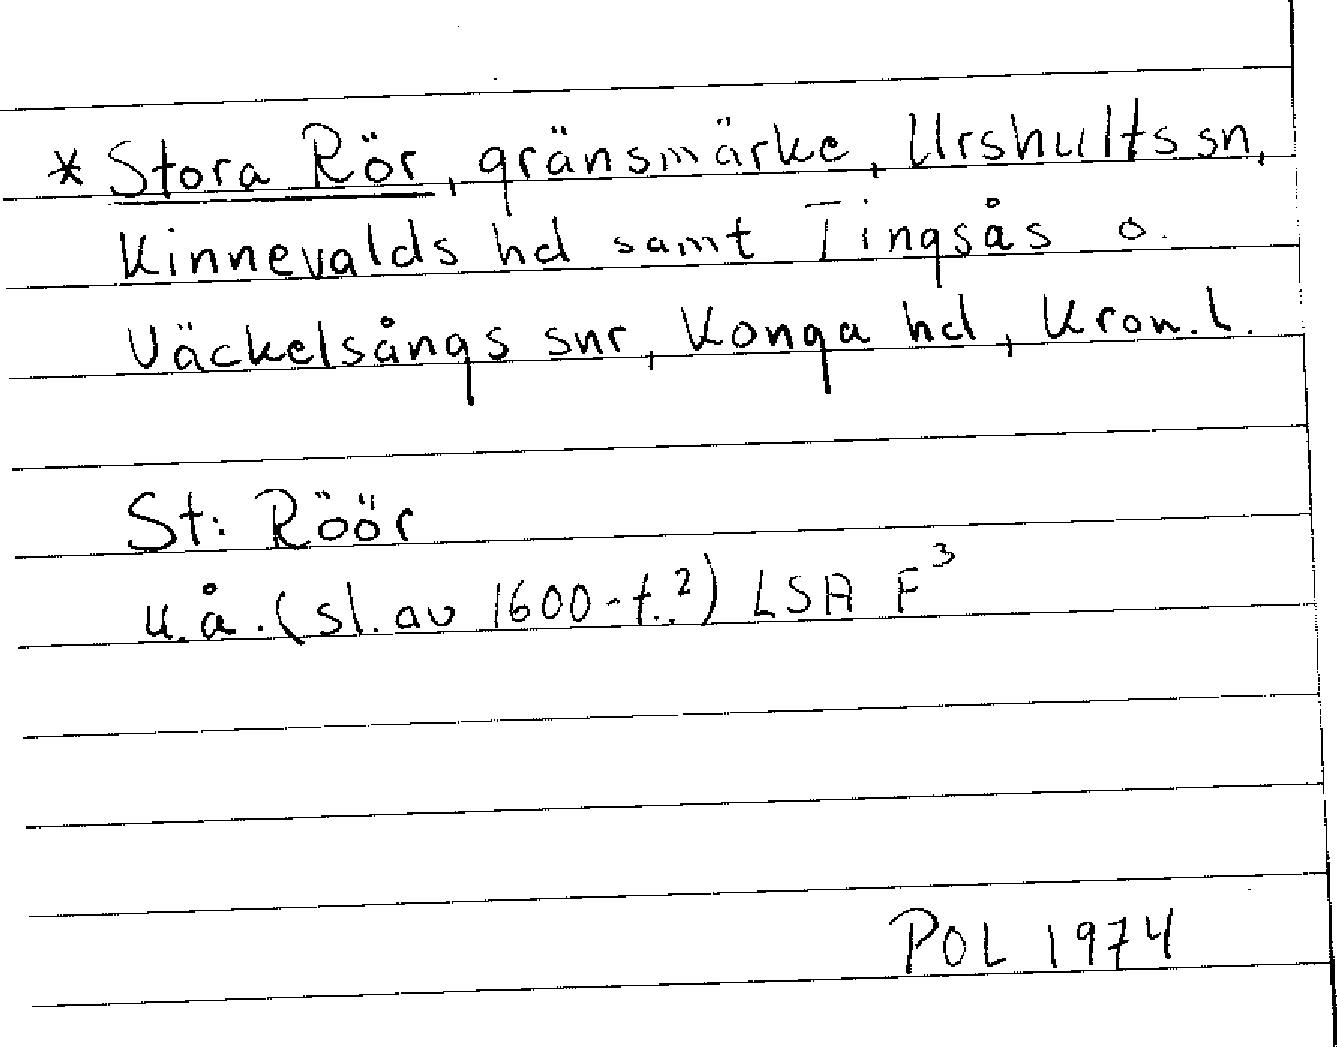 * Stora Rör, gränsmärke, Urshults sn,
Kinnevalds hd samt Tingsås o.
Väckelsångs snr, Konga hd, Kron. l.
St: Röör
u.å. (sl. av 1600-t.?) LSA F³
POL 1974